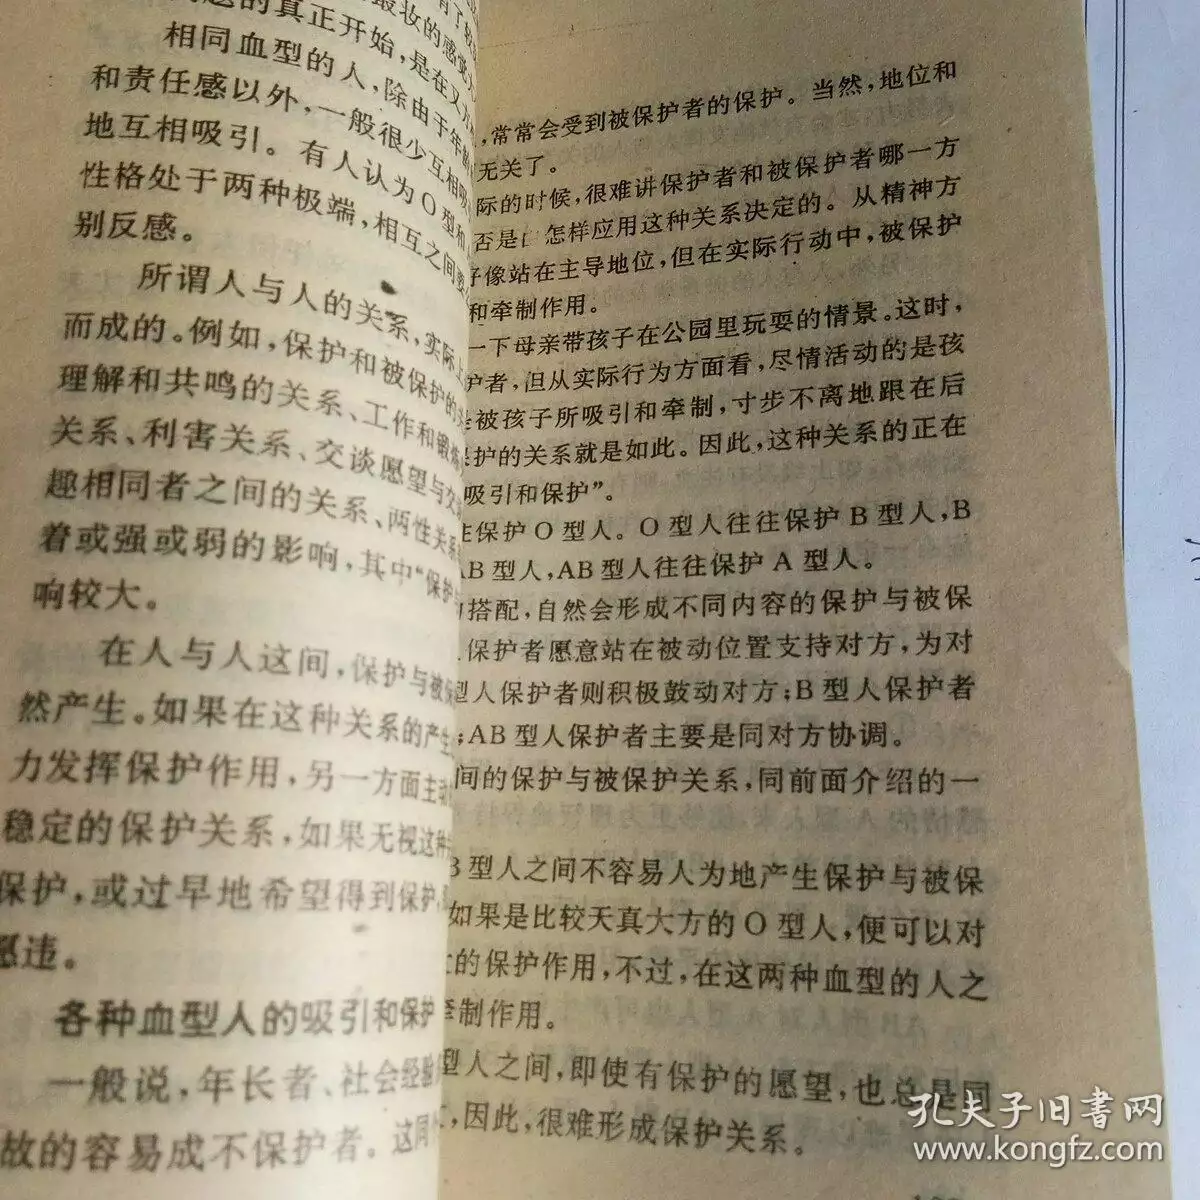 题的真正开始，是在又
相同血型的人，除由于年龄
和责任感以外，一般很少互相吸
地互相吸引。有人认为O型和
性格处于两种极端，相互之间
别反感。
所谓人与人的关系，实际上
而成的。例如，保护和被保护的
理解和共鸣的关系、工作和锻炼
关系、利害关系、交谈愿望与交
趣相同者之间的关系、两性关系
着或强或弱的影响，其中“保护
响较大。
在人与人这间，保护与被保
然产生。如果在这种关系的产生
力发挥保护作用，另一方面主动
稳定的保护关系，如果无视这种
保护，或过早地希望得到保护，
愿违。
各种血型人的吸引和保护
一般说，年长者、社会经验
故的容易成不保护者。这同
，常常会受到被保护者的保护。当然，地位和
无关了。
际的时候，很难讲保护者和被保护者哪一方
否是由怎样应用这种关系决定的。从精神方
好像站在主导地位，但在实际行动中，被保护
和牵制作用。
一下母亲带孩子在公园里玩耍的情景。这时，
护者，但从实际行为方面看，尽情活动的是孩
是被孩子所吸引和牵制，寸步不离地跟在后
保护的关系就是如此。因此，这种关系的正在
吸引和保护”。
往保护O型人。O型人往往保护B型人，B
AB型人，AB型人往往保护A型人。
的搭配，自然会形成不同内容的保护与被保
保护者愿意站在被动位置支持对方，为对
型人保护者则积极鼓动对方；B型人保护者
；AB型人保护者主要是同对方协调。
间的保护与被保护关系，同前面介绍的一
B型人之间不容易人为地产生保护与被保
如果是比较天真大方的O型人，便可以对
的保护作用，不过，在这两种血型的人之
牵制作用。
型人之间，即使有保护的愿望，也总是同
，因此，很难形成保护关系。
孔夫子旧书网
www.kongfz.com